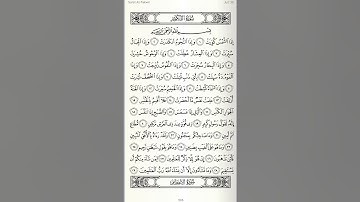 سُورَةُ التَّكْوِيرِ
بِسْمِ ٱللَّهِ ٱلرَّحْمَٰنِ ٱلرَّحِيمِ
إِذَا ٱلشَّمْسُ كُوِّرَتْ ١ وَإِذَا ٱلنُّجُومُ ٱنكَدَرَتْ ٢ وَإِذَا ٱلْجِبَالُ
سُيِّرَتْ ٣ وَإِذَا ٱلْعِشَارُ عُطِّلَتْ ٤ وَإِذَا ٱلْوُحُوشُ حُشِرَتْ
٥ وَإِذَا ٱلْبِحَارُ سُجِّرَتْ ٦ وَإِذَا ٱلنُّفُوسُ زُوِّجَتْ ٧ وَإِذَا ٱلْمَوْءُۥدَةُ
سُئِلَتْ ٨ بِأَيِّ ذَنۢبٍ قُتِلَتْ ٩ وَإِذَا ٱلصُّحُفُ نُشِرَتْ ١٠ وَإِذَا ٱلسَّمَآءُ
كُشِطَتْ ١١ وَإِذَا ٱلْجَحِيمُ سُعِّرَتْ ١٢ وَإِذَا ٱلْجَنَّةُ أُزْلِفَتْ
١٣ عَلِمَتْ نَفْسٌ مَّآ أَحْضَرَتْ ١٤ فَلَآ أُقْسِمُ بِٱلْخُنَّسِ ١٥
ٱلْجَوَارِ ٱلْكُنَّسِ ١٦ وَٱلَّيْلِ إِذَا عَسْعَسَ ١٧ وَٱلصُّبْحِ إِذَا تَنَفَّسَ ١٨
إِنَّهُۥ لَقَوْلُ رَسُولٍ كَرِيمٍ ١٩ ذِى قُوَّةٍ عِندَ ذِى ٱلْعَرْشِ مَكِينٍ ٢٠ مُّطَاعٍ
ثَمَّ أَمِينٍ ٢١ وَمَا صَاحِبُكُم بِمَجْنُونٍ ٢٢ وَلَقَدْ رَءَاهُ بِٱلْأُفُقِ ٱلْمُبِينِ
٢٣ وَمَا هُوَ عَلَى ٱلْغَيْبِ بِضَنِينٍ ٢٤ وَمَا هُوَ بِقَوْلِ شَيْطَٰنٍ رَّجِيمٍ
٢٥ فَأَيْنَ تَذْهَبُونَ ٢٦ إِنْ هُوَ إِلَّا ذِكْرٌ لِّلْعَٰلَمِينَ ٢٧ لِمَن شَآءَ مِنكُمْ أَن
يَسْتَقِيمَ ٢٨ وَمَا تَشَآءُونَ إِلَّآ أَن يَشَآءَ ٱللَّهُ رَبُّ ٱلْعَٰلَمِينَ ٢٩
سُورَةُ الانفِطَارِ